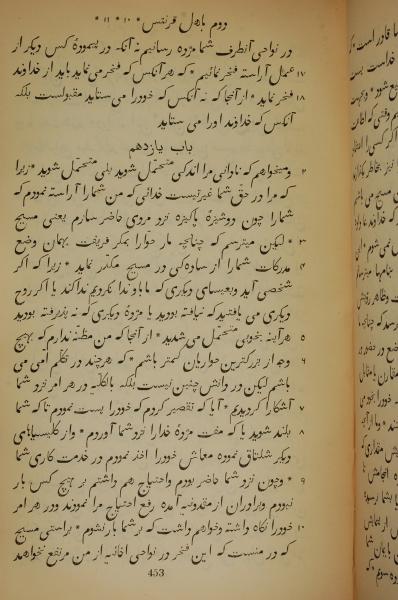 دوم باهل قرنتس * ۱۰ * ۱۱ *
در نواحی آنطرف شما مژده رسانیم نه آنکه در پیمودهٔ کس دیگر از
۱۷ عمل آراسته فخر نمائیم * که هر آنکس که فخر می نماید باید از خداوند
۱۸ فخر نماید * از آنجا که نه آنکس که خود را می ستاید مقبولست بلکه
آنکس که خداوند او را می ستاید
باب یازدهم
و میخواهم که نادانی مرا اندکی متحمل شوید بلی متحمل شوید * زیرا
۲ که مرا در حق شما غیرتیست خدائی که من شما را آراسته نمودم که
شما را چون دوشیزهٔ پاکیزه نزد مردی حاضر سازم یعنی مسیح
۳ * لیکن میترسم که چنانچه مار حوا را بمکر فریفت بهمان وضع
۴ مدرکات شما را از ساده کی در مسیح مکدر نماید * زیرا که اگر
شخصی آید و بعیسای دیگری که ما با و ندا نکردیم ندا کند یا اگر روح
دیگری می یافتید که نیافته بودید یا مژدهٔ دیگری که نه پذیرفته بودید
۵ هر آینه بخوبی متحمل می شدید * از آنجا که من مظنه ندارم که بهیچ
۶ وجه از بزرگترین حواریان کمتر باشم * که هرچند در تکلم امی می
باشم لیکن در دانش چنین نیست بلکه بالکلیه در هر امر نزد شما
۷ آشکارا گردیدیم * آیا که تقصیر کردم که خود را پست نمودم تا که شما
۸ بلند شوید یا که مفت مژدهٔ خدا را نزد شما آوردم * و از کلیسیاهای
دیگر شلتاق نموده معاش خود را اخذ نمودم در خدمت کاری شما
۹ * و چون نزد شما حاضر بودم و احتیاج هم داشتم بر هیچ کس بار
نبودم و برادران از مقدونیه آمده رفع احتیاج مرا نمودند و در هر امر
۱۰ خود را نگاه داشته و خواهم داشت که بر شما بار نشوم * براستی مسیح
که در منست که این فخر در نواحی اخائیه از من مرتفع نخواهد
453